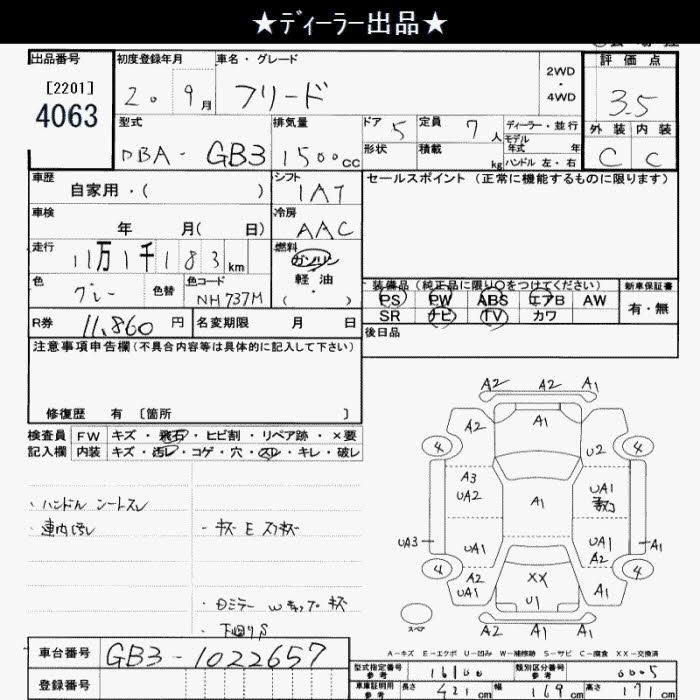 ★ディーラー出品★
出品番号
[2201]
4063
初度登録年月
2. 9月
車名・グレード
フリード
2WD
・
4WD
評価点
3.5
外装 内装
C C
型式
DBA- GB3
排気量
1500cc
ドア 5
形状
定員 7人
積載 kg
ディーラー・並行
モデル年式 年
ハンドル 左・右
車歴
自家用・( )
シフト
IAT
セールスポイント (正常に機能するものに限ります)
車検
年 月( 日)
冷房
AAC
走行
11万1千183km
燃料
ガソリン
軽油
( ・ )
色
グレー
色替
色コード
NH737M
装備品 (純正品に限り○をつけてください)
新車保証書
PS PW ABS エアB AW
SR ナビ TV カワ
有・無
R券 11,860円
名変期限 月 日
後日品
注意事項申告欄 (不具合内容等は具体的に記入して下さい)
修復歴 有 〔箇所 〕
検査員
記入欄
FW キズ・飛石・ヒビ割・リペア跡・×要
内装 キズ・汚レ・コゲ・穴・スレ・キレ・破レ
・ハンドル シートスレ
・車内汚レ
・キズ E スリキズ
・下回りS
A2 A2 A1
A2 A1
4 U2 4
A3
UA2
A1
UA1
UA3 UA1 UA1 A1
A2
4 A2 XX 4
UA1 U1 A1
A2 A1 A1
スペア
A-キズ E-エクボ U-凹み W-補修跡 S-サビ C-腐食 XX-交換済
車台番号 GB3-1022657
登録番号
型式指定番号
参考
16100
類別区分番号
参考
0005
車庫証明用
参考
長さ 421cm 幅 169cm 高さ 171cm